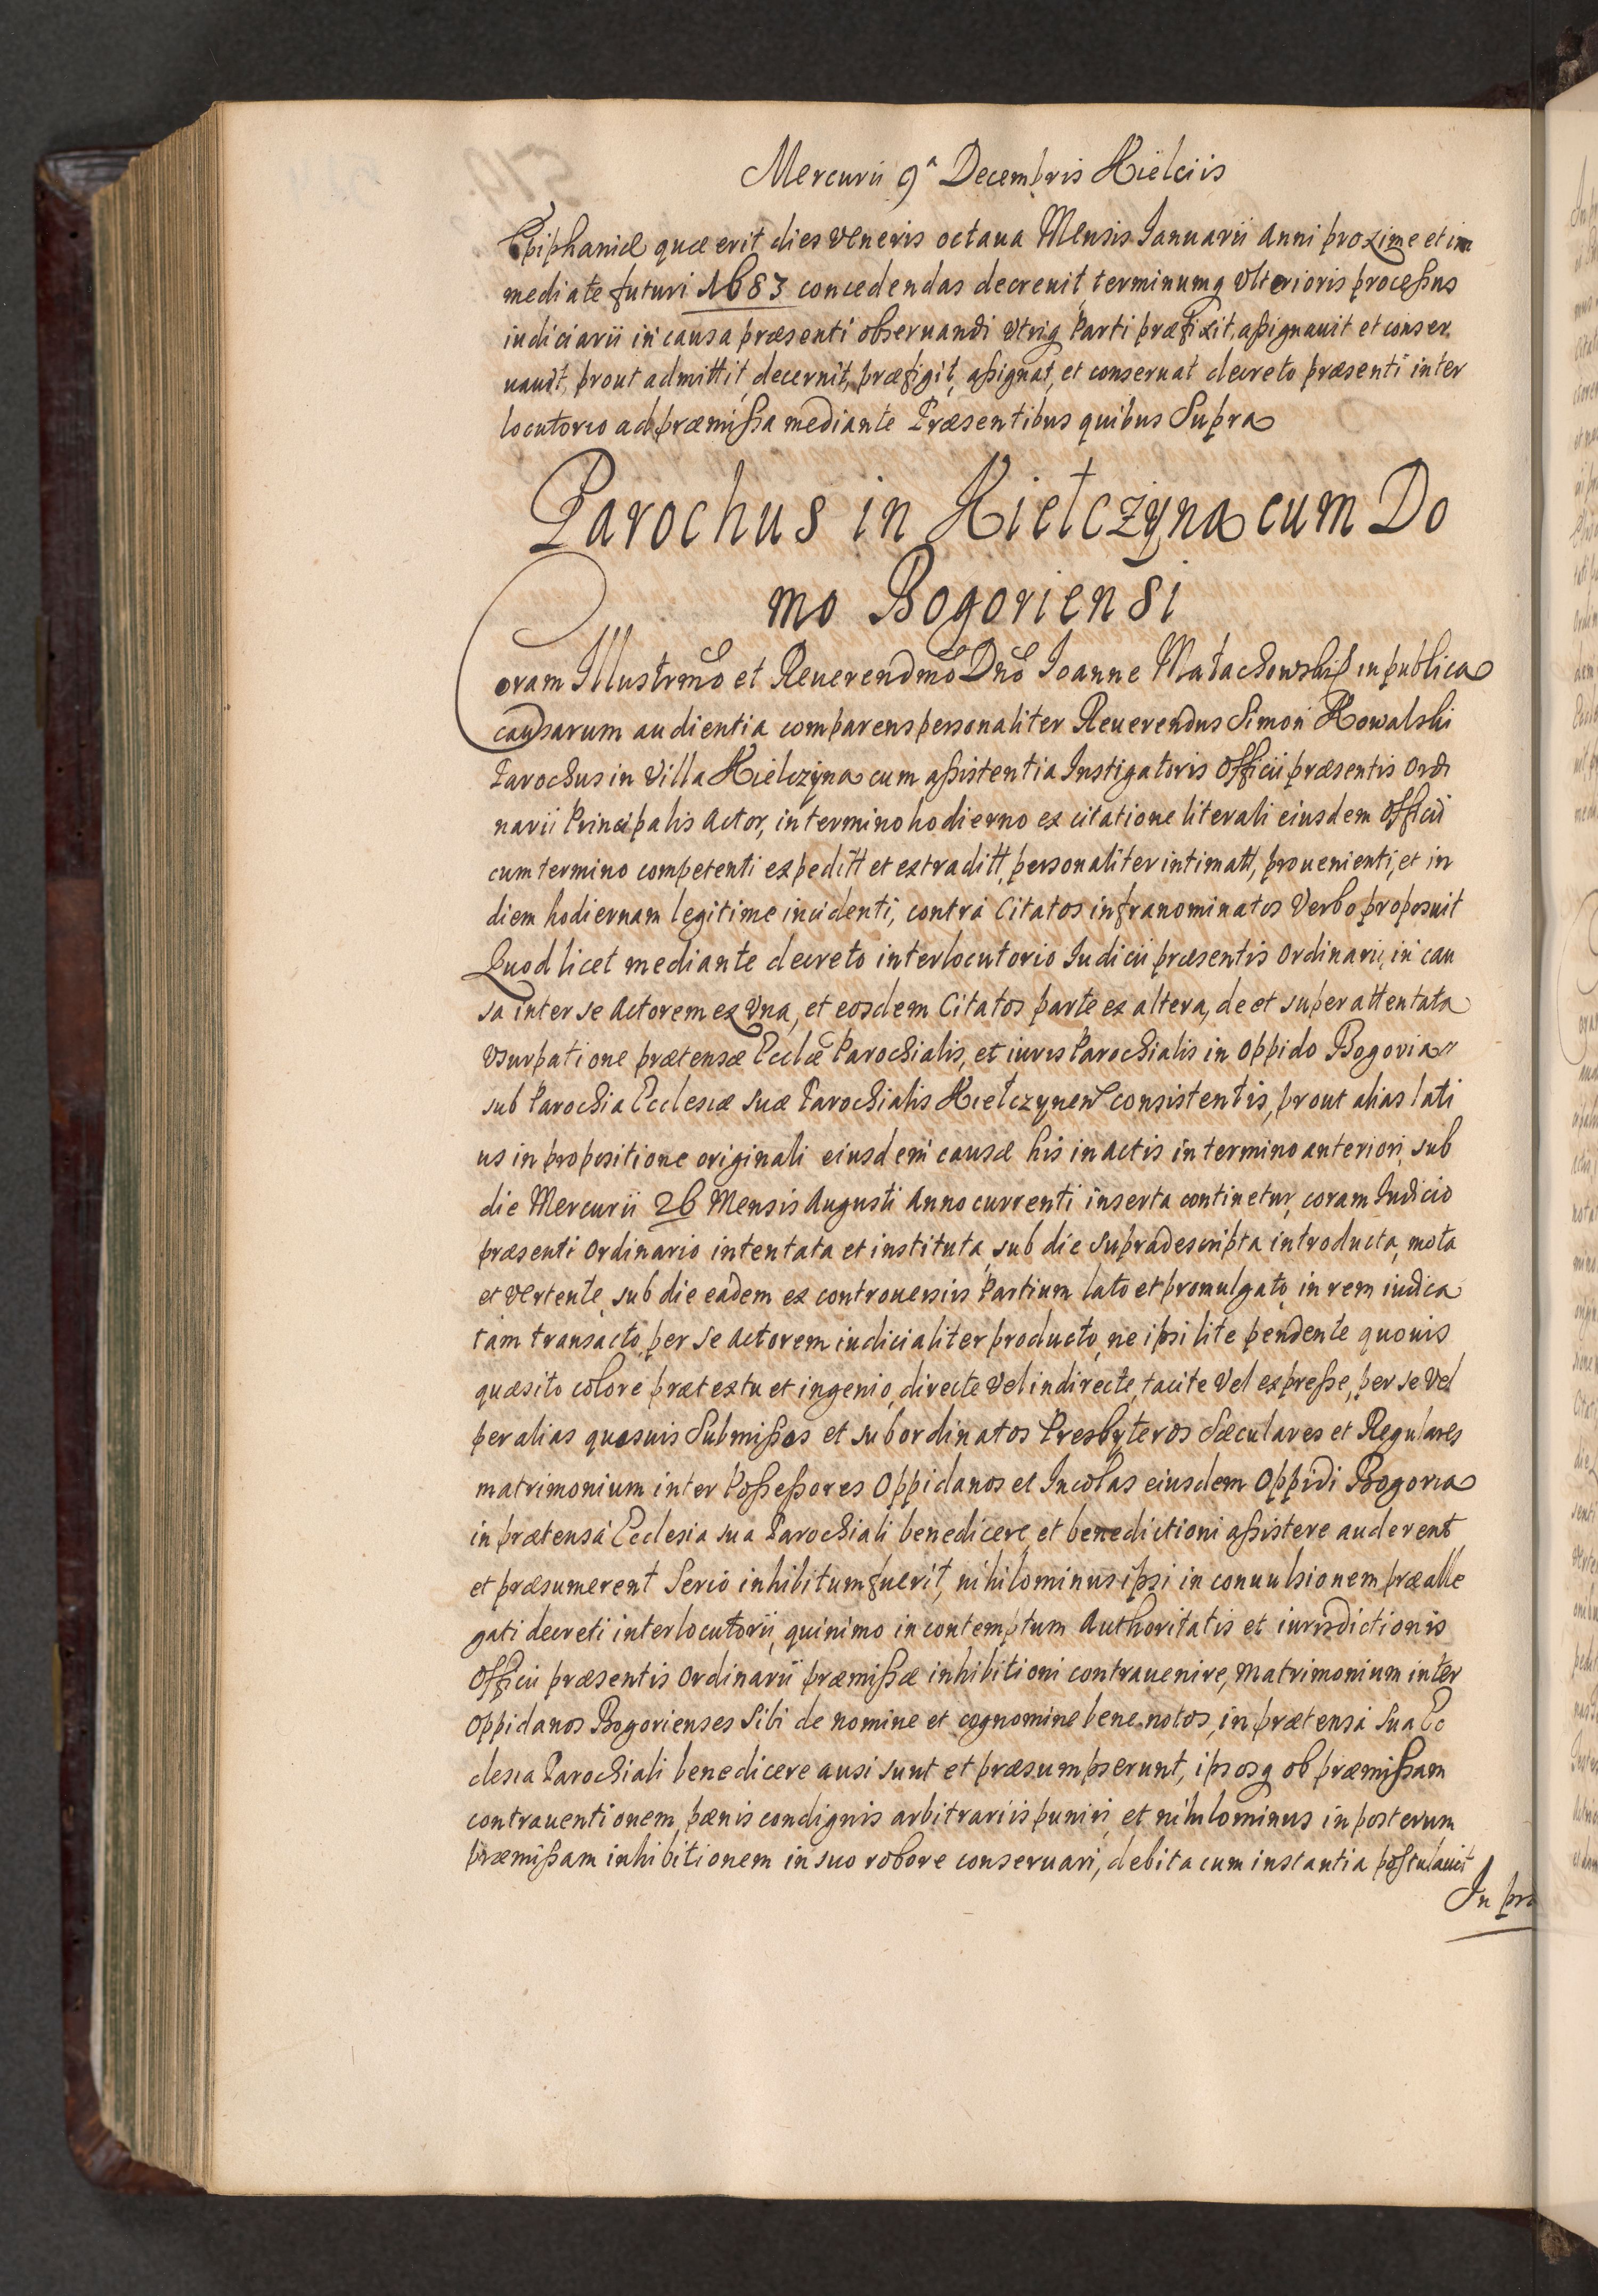 Mercurii 9ª Decembris Kielciis
Epiphaniæ quæ erit dies Veneris octaua Mensis Januarii Anni proxime et im
mediate futuri 1683 concedendas decreuit, terminumq Vlterioris processus
iudiciarii in causa præsenti obseruandi Vtriq Parti præfixit, assignauit et conser
uauit, prout admittit, decernit, præfigit, assignat, et conseruat decreto præsenti inter
locutorio ad præmissa mediante Præsentibus quibus Supra
Parochus in Kiełczÿna cum Do
mo Bogoriensi
Coram Illustrmo et Reuerendmo Dno Joanne Małachowski in publica
causarum audientia comparens personaliter Reuerendus Simon Kowalski
Parochus in Villa Kiełczÿna cum assistentia Instigatoris Officii præsentis Ordi
narii Principalis Actor, in termino hodierno ex citatione literali eiusdem Officii
cum termino competenti expeditt et extraditt, personaliter intimatt, prouenienti, et in
diem hodiernam legitime incidenti, contra Citatos infranominatos Verbo proposuit
Quod licet mediante decreto interlocutorio Iudicii præsentis Ordinarii, in cau
sa inter se Actorem ex Vna, et eosdem Citatos parte ex altera, de et super attentata
Vsurpatione prætensæ Ecclæ Parochialis, et iuris Parochialis in Oppido Bogoria
sub Parochia Ecclesiæ suæ Parochialis Kiełczynen consistentis, prout alias lati
us in propositione originali eiusdem causæ his in actis in termino anteriori, sub
die Mercurii 26 Mensis Augusti Anno currenti inserta continetur, coram Iudicio
præsenti Ordinario intentata et instituta, sub die supradescripta introducta, mota
et vertente, sub die eadem ex controuersiis Partium lato et promulgato, in rem iudica
tam transacto, per se Actorem iudicialiter producto, ne ipsi lite pendente quouis
quæsito colore prætextu et ingenio, directe Vel indirecte, tacite Vel expresse, per se Vel
per alias quosuis Submissos et subordinatos Presbyteros Sæculares et Regulares
matrimonium inter Possessores Oppidanos et Incolas eiusdem Oppidi Bogoria
in prætensa Ecclesia sua Parochiali benedicere, et benedictioni assistere auderent
et præsumerent Serio inhibitum fuerit, nihilominus ipsi in conuulsionem prealle
gati decreti interlocutorii, quinimo in contemptum Authoritatis et iurisdictionis
Officii præsentis Ordinarii præmissæ inhibitioni contrauenire, Matrimonium inter
Oppidanos Bogorienses Sibi de nomine et cognomine bene notos, in prætensa Sua Ec
clesia Parochiali benedicere ausi sunt et præsumpserunt, ipsosq ob præmissam
contrauentionem, pænis condignis arbitrariis puniri, et nihilominus in posterum
præmissam inhibitionem in suo robore conseruari, debita cum instantia postulauit
In pra